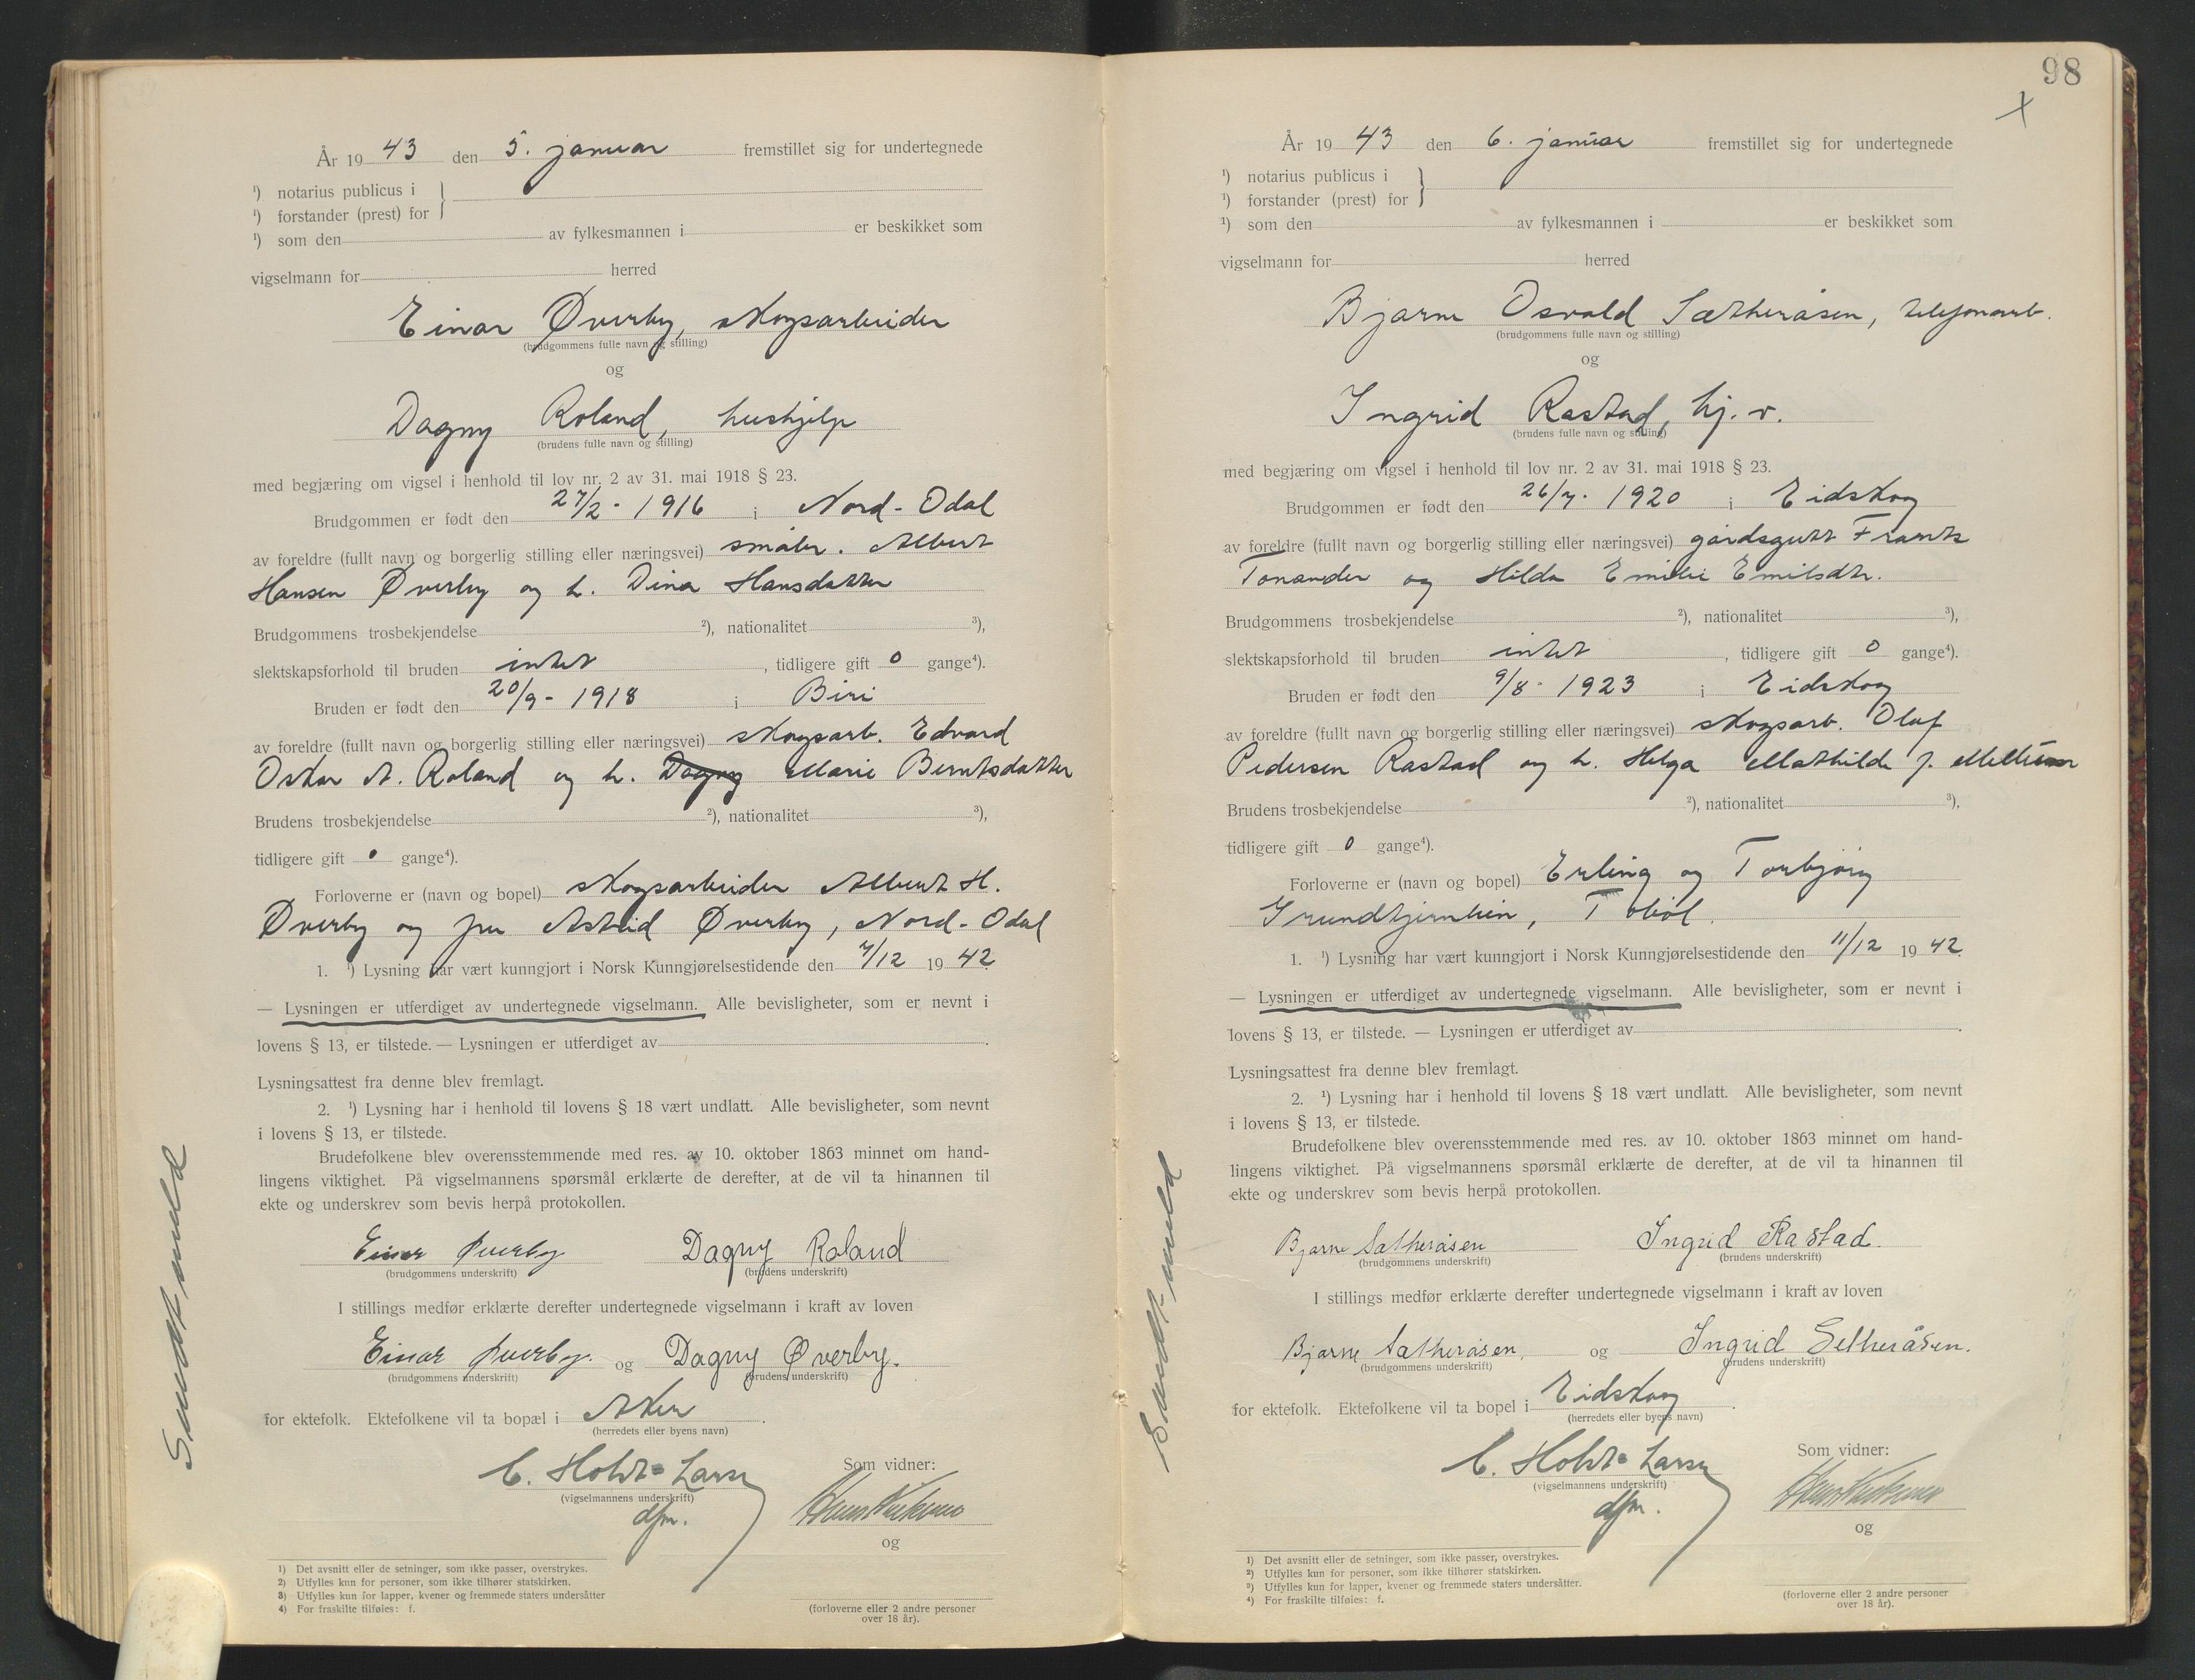 År 1943 den 5. januar fremstillet sig for undertegnede
¹) notarius publicus i
¹) forstander (prest) for
¹) som den av fylkesmannen i er beskikket som
vigselmann for herred
Einar Øverby, skogsarbeider
(brudgommens fulle navn og stilling)
og
Dagny Roland, hushjelp
(brudens fulle navn og stilling)
med begjæring om vigsel i henhold til lov nr. 2 av 31. mai 1918 § 23.
Brudgommen er født den 27/2 - 1916 i Nord-Odal
av foreldre (fullt navn og borgerlig stilling eller næringsvei) småbr. Albert
Hansen Øverby og h. Dina Hansdatter
Brudgommens trosbekjendelse ²), nationalitet ³),
slektskapsforhold til bruden intet, tidligere gift 0 gange⁴).
Bruden er født den 20/9 - 1918 i Biri
av foreldre (fullt navn og borgerlig stilling eller næringsvei) skogsarb. Edvard
Oskar A. Roland og h. Dagny Marie Berntsdatter
Brudens trosbekjendelse ²), nationalitet ³),
tidligere gift 0 gange⁴).
Forloverne er (navn og bopel) skogsarbeider Albert H.
Øverby og fru Astrid Øverby, Nord-Odal
1. ¹) Lysning har vært kunngjort i Norsk Kunngjørelsestidende den 7/12 1942
— Lysningen er utferdiget av undertegnede vigselmann. Alle bevisligheter, som er nevnt i
lovens § 13, er tilstede. — Lysningen er utferdiget av .
Lysningsattest fra denne blev fremlagt.
2. ¹) Lysning har i henhold til lovens § 18 vært undlatt. Alle bevisligheter, som nevnt
i lovens § 13, er tilstede.
Brudefolkene blev overensstemmende med res. av 10. oktober 1863 minnet om hand-
lingens viktighet. På vigselmannens spørsmål erklærte de derefter, at de vil ta hinannen til
ekte og underskrev som bevis herpå protokollen.
Einar Øverby Dagny Roland
(brudgommens underskrift) (brudens underskrift)
I stillings medfør erklærte derefter undertegnede vigselmann i kraft av loven
Einar Øverby. og Dagny Øverby.
(brudgommens underskrift) (brudens underskrift)
for ektefolk. Ektefolkene vil ta bopæl i Aker.
(herredets eller byens navn)
C. Holst-Larsen
(vigselmannens underskrift)
dfm.
Som vidner:
og
¹) Det avsnitt eller de setninger, som ikke passer, overstrykes.
²) Utfylles kun for personer, som ikke tilhører statskirken.
³) Utfylles kun for lapper, kvener og fremmede staters undersåtter
⁴) For fraskilte tilføies: f.
(forloverne eller 2 andre personer
over 18 år).
Sendt meld
98
År 1943 den 6. januar fremstillet sig for undertegnede
¹) notarius publicus i
¹) forstander (prest) for
¹) som den av fylkesmannen i er beskikket som
vigselmann for herred
Bjarne Osvald Sætheråsen, telefonarb.
(brudgommens fulle navn og stilling)
og
Ingrid Rastad, hj. v.
(brudens fulle navn og stilling)
med begjæring om vigsel i henhold til lov nr. 2 av 31. mai 1918 § 23.
Brudgommen er født den 26/7 - 1920 i Eidskog
av foreldre (fullt navn og borgerlig stilling eller næringsvei) gårdsgutt Frants
Tonander og Hilda Emilie Emilsdtr.
Brudgommens trosbekjendelse ²), nationalitet ³),
slektskapsforhold til bruden intet, tidligere gift 0 gange⁴).
Bruden er født den 9/8 - 1923 i Eidskog
av foreldre (fullt navn og borgerlig stilling eller næringsvei) skogsarb. Olaf
Pedersen Rastad og h. Helga Mathilde f.
Brudens trosbekjendelse ²), nationalitet ³),
tidligere gift 0 gange⁴).
Forloverne er (navn og bopel) Erling og Torbjørg
Grundtjernlien, Tobøl.
1. ¹) Lysning har vært kunngjort i Norsk Kunngjørelsestidende den 11/12 1942
— Lysningen er utferdiget av undertegnede vigselmann. Alle bevisligheter, som er nevnt i
lovens § 13, er tilstede. — Lysningen er utferdiget av .
Lysningsattest fra denne blev fremlagt.
2. ¹) Lysning har i henhold til lovens § 18 vært undlatt. Alle bevisligheter, som nevnt
i lovens § 13, er tilstede.
Brudefolkene blev overensstemmende med res. av 10. oktober 1863 minnet om hand-
lingens viktighet. På vigselmannens spørsmål erklærte de derefter, at de vil ta hinannen til
ekte og underskrev som bevis herpå protokollen.
Bjarne Sætheråsen Ingrid Rastad.
(brudgommens underskrift) (brudens underskrift)
I stillings medfør erklærte derefter undertegnede vigselmann i kraft av loven
Bjarne Sætheråsen, og Ingrid Setheråsen.
(brudgommens underskrift) (brudens underskrift)
for ektefolk. Ektefolkene vil ta bopel i Eidskog.
(herredets eller byens navn)
C. Holst-Larsen
(vigselmannens underskrift)
dfm.
Som vidner:
og
¹) Det avsnitt eller de setninger, som ikke passer, overstrykes.
²) Utfylles kun for personer, som ikke tilhører statskirken.
³) Utfylles kun for lapper, kvener og fremmede staters undersåtter.
⁴) For fraskilte tilføies: f.
(forloverne eller 2 andre personer
over 18 år).
Sendt meld